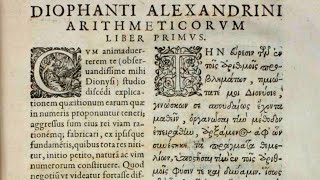 DIOPHANTI ALEXANDRINI
ARITHMETICORVM
LIBER PRIMVS.
CVM animaduer-
terem te (obser-
uandissime mihi
Dionysi) studio
discēdi explica-
tionem quæstionum earum quæ
in numeris proponuntur teneri,
aggressus sum eius rei viam ra-
tionemq; fabricari, ex ipsisque
fundamētis, quibus tota res niti-
tur, initio petito, naturam ac vim
numerorum constituere. Quod
negotiū vt videatur fortasse dif-
ΤΗΝ εὕρεσιν τῶν ἐν
τοῖς ἀριθμοῖς προ-
βλημάτων, τιμιώτα-
τέ μοι Διονύσιε,
γινώσκων σε σπουδαίως ἔχοντα
μαθεῖν, ὀργανῶσαι τὴν μέθοδον
ἐπειράθην, ἀρξάμενος ἀφ' ὧν
τὰ πράγματα θεμελίων,
ὑποστῆσαι τὴν ἐν τοῖς ἀριθ-
μοῖς φύσιν τε καὶ δύναμιν. ἴσως